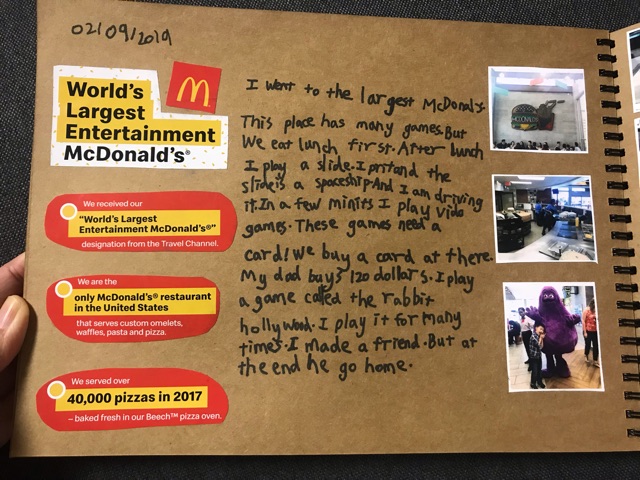 02/09/2019
World's
Largest
Entertainment
McDonald's®
We received our
"World's Largest
Entertainment McDonald's®"
designation from the Travel Channel.
We are the
only McDonald's® restaurant
in the United States
that serves custom omelets,
waffles, pasta and pizza.
We served over
40,000 pizzas in 2017
– baked fresh in our Beech™ pizza oven.
I went to the largest McDonald's.
This place has many games. But
We eat lunch first. After lunch
I play a slide. I prtand the
slide is a spaceship. And I am driving
it. In a few minits I play vido
games. These games need a
card! We buy a card at there.
My dad buys 120 dollars. I play
a game called the rabbit
hollywood. I play it for many
times. I made a friend. But at
the end he go home.